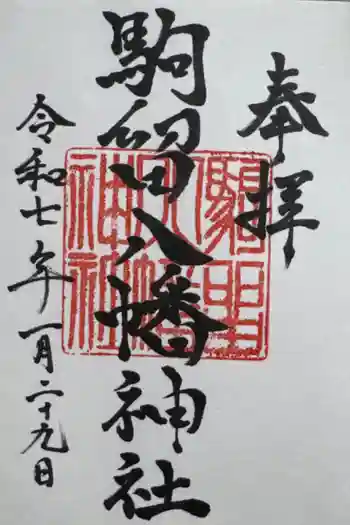 奉拝
駒留八幡神社
令和七年一月二十九日
駒留
八幡
神社